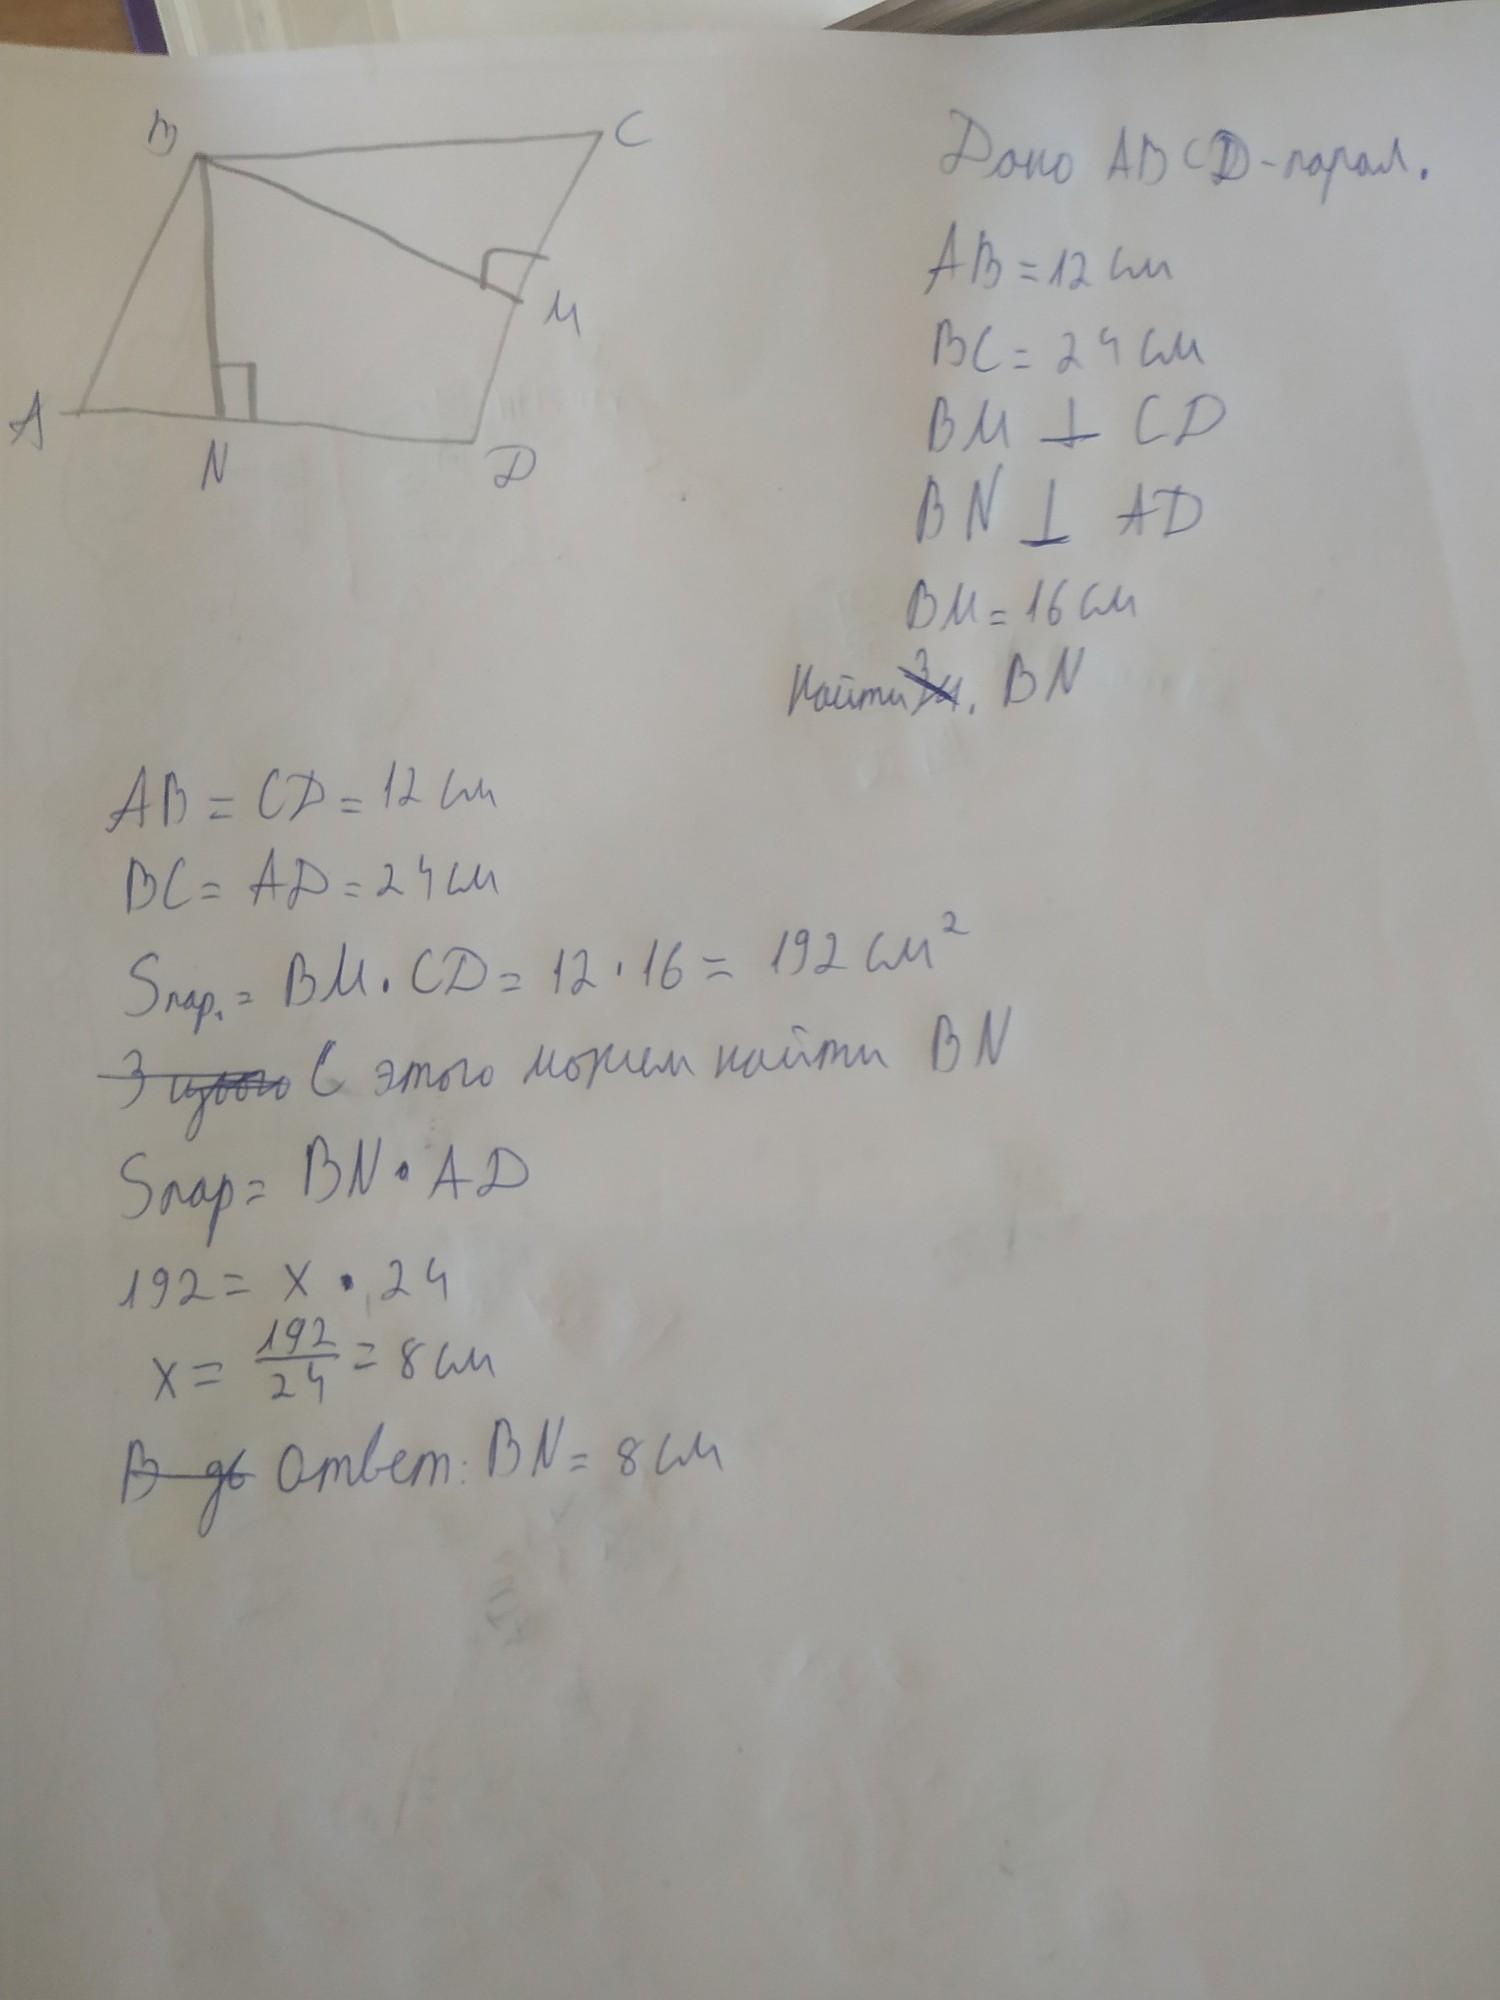 B
C
M
A
N
D
Дано ABCD-парал.
AB = 12 см
BC = 24 см
BM ⊥ CD
BN ⊥ AD
BM = 16 см
Найти . BN
AB = CD = 12 см
BC = AD = 24 см
Sпар. = BM · CD = 12 · 16 = 192 см²
З цього С этого можем найти BN
Sпар = BN · AD
192 = x · 24
x = 192/24 = 8 см
В-дь Ответ: BN = 8 см